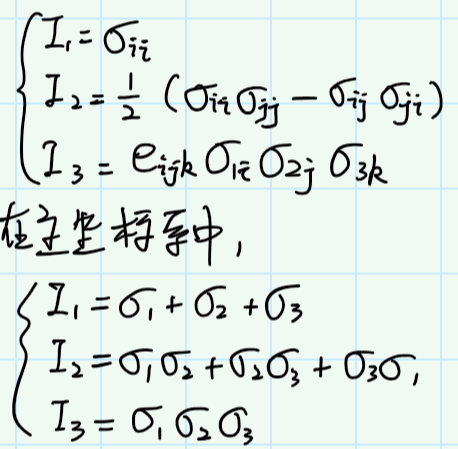 I₁ = σᵢᵢ
I₂ = 1/2 (σᵢᵢ σⱼⱼ − σᵢⱼ σⱼᵢ)
I₃ = eᵢⱼₖ σ₁ᵢ σ₂ⱼ σ₃ₖ
在主坐标系中,
I₁ = σ₁ + σ₂ + σ₃
I₂ = σ₁σ₂ + σ₂σ₃ + σ₃σ₁
I₃ = σ₁ σ₂ σ₃